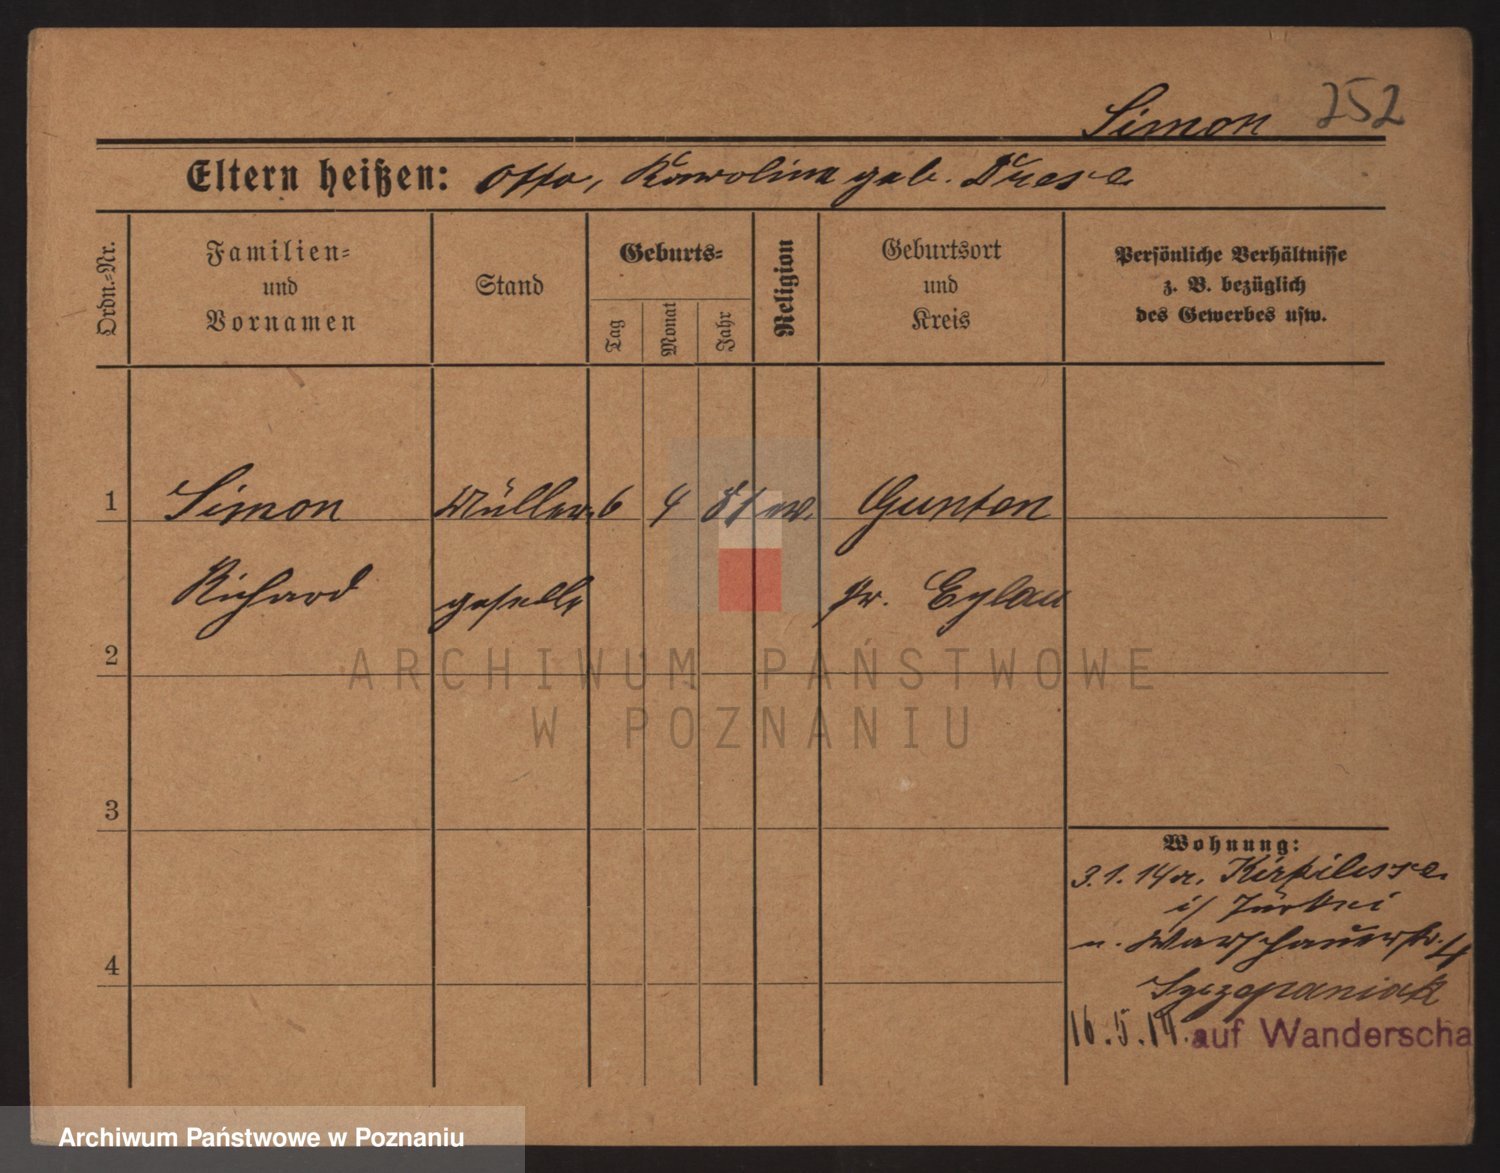 Simon 252
Eltern heißen: Otto, Karoline geb. Drese
Ordn.-Nr.
Familien=
und
Vornamen
Stand
Geburts=
Tag
Monat
Jahr
Religion
Geburtsort
und
Kreis
Persönliche Verhältnisse
z. B. bezüglich
des Gewerbes usw.
1 Simon Müller 6 4 81 ev. Gunten
Richard geselle Pr. Eylau
2
ARCHIWUM PAŃSTWOWE
W POZNANIU
3
Wohnung:
3.1.14 a.
i/ Türkei
n. Warschauerstr. 4
4
Szczepaniak
16.5.14. auf Wanderscha
Archiwum Państwowe w Poznaniu